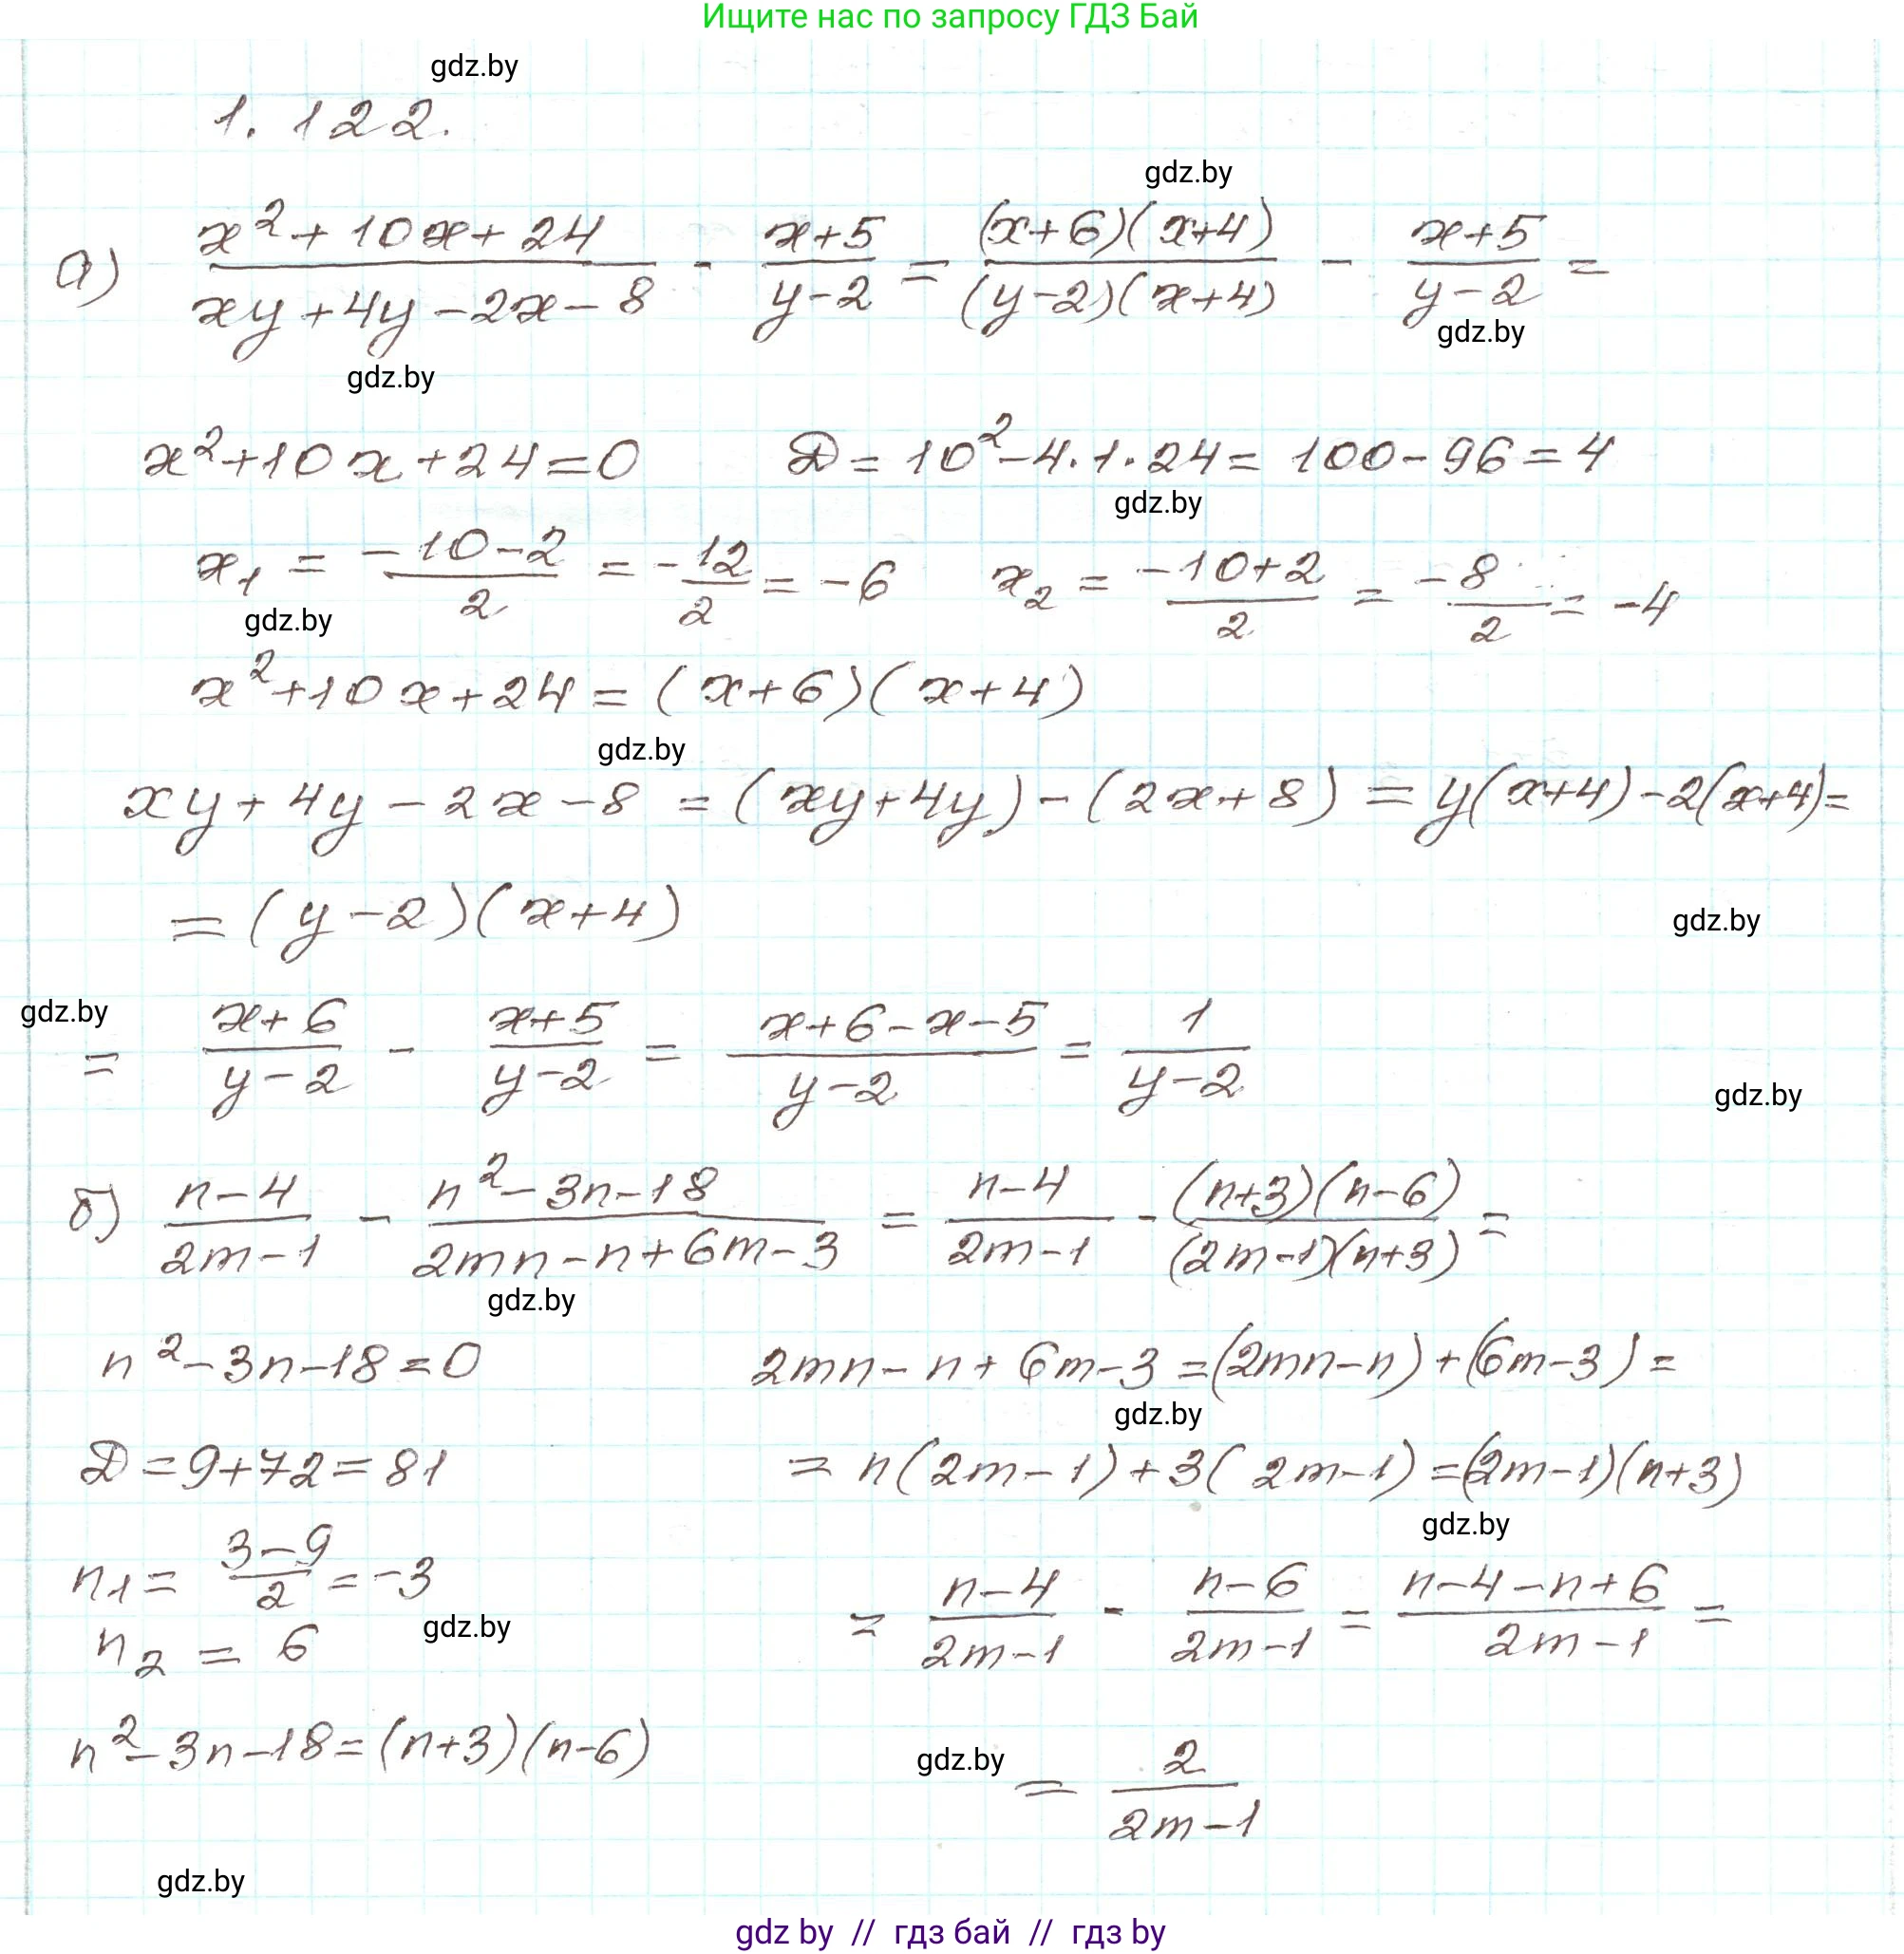 Ищите нас по запросу ГДЗ Бай
gdz.by
1.122.
gdz.by
а) (x²+10x+24)/(xy+4y-2x-8) - (x+5)/(y-2) = ((x+6)(x+4))/((y-2)(x+4)) - (x+5)/(y-2) =
gdz.by
gdz.by
x²+10x+24=0 D=10²-4·1·24=100-96=4
gdz.by
x₁ = (-10-2)/2 = -12/2 = -6 x₂ = (-10+2)/2 = -8/2 = -4
gdz.by
x²+10x+24=(x+6)(x+4)
gdz.by
xy+4y-2x-8=(xy+4y)-(2x+8)=y(x+4)-2(x+4)=
=(y-2)(x+4)
gdz.by
gdz.by
= (x+6)/(y-2) - (x+5)/(y-2) = (x+6-x-5)/(y-2) = 1/(y-2)
gdz.by
б) (n-4)/(2m-1) - (n²-3n-18)/(2mn-n+6m-3) = (n-4)/(2m-1) - ((n+3)(n-6))/((2m-1)(n+3)) =
gdz.by
n²-3n-18=0 2mn-n+6m-3=(2mn-n)+(6m-3)=
gdz.by
D=9+72=81 =n(2m-1)+3(2m-1)=(2m-1)(n+3)
gdz.by
n₁ = (3-9)/2 = -3 = (n-4)/(2m-1) - (n-6)/(2m-1) = (n-4-n+6)/(2m-1) =
gdz.by
n₂ = 6
n²-3n-18=(n+3)(n-6)
gdz.by
= 2/(2m-1)
gdz.by
gdz by // гдз бай // гдз by